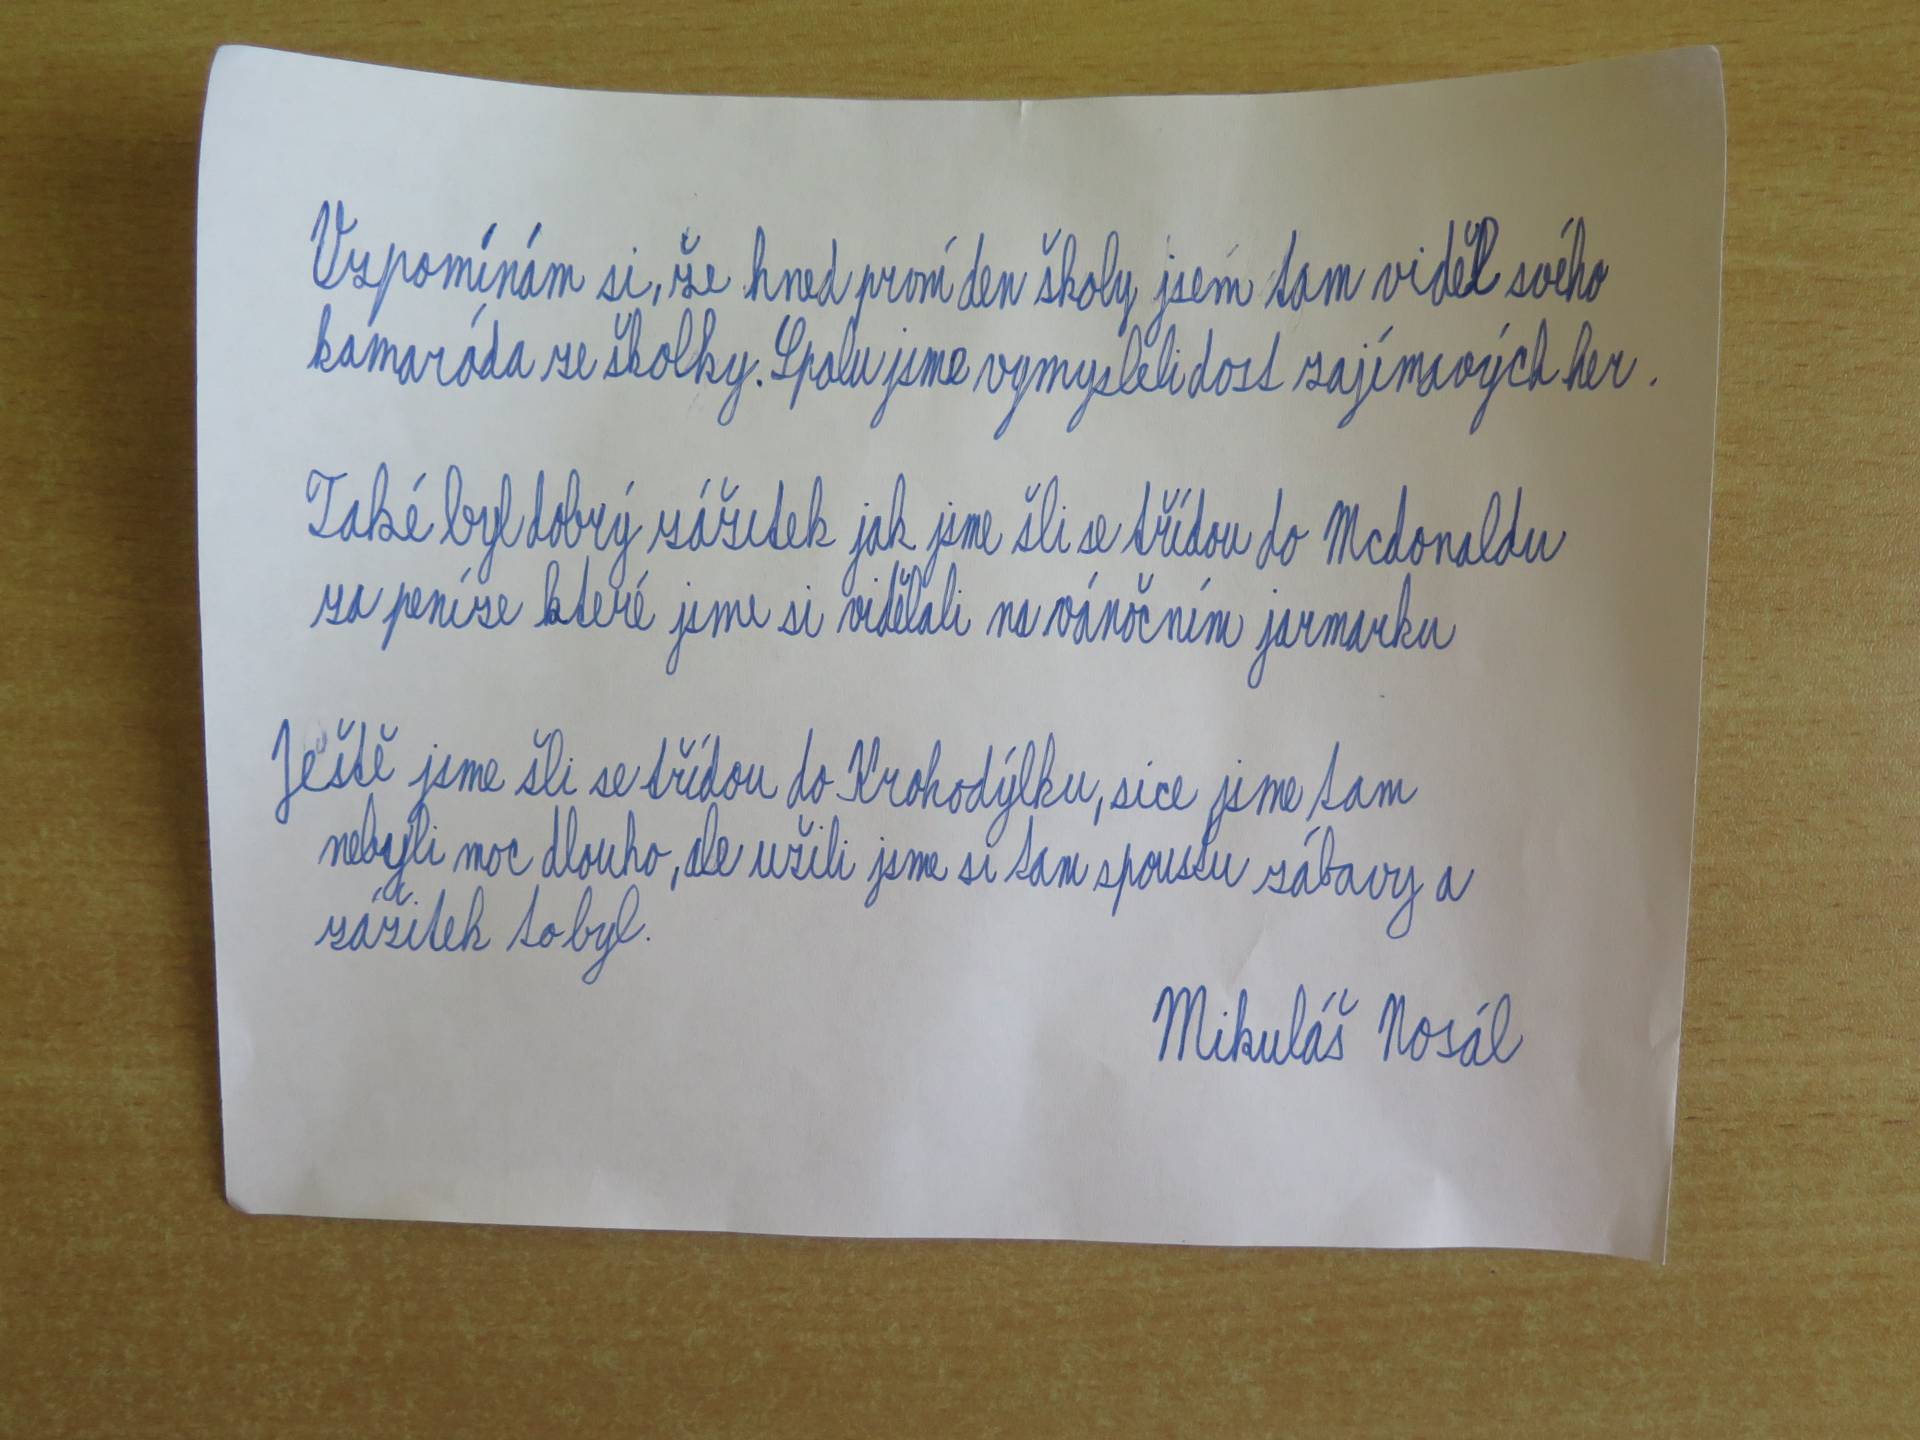 Vzpomínám si, že hned první den školy jsem tam viděl svého
kamaráda ze školky. Spolu jsme vymysleli dost zajímavých her.
Také byl dobrý zážitek jak jsme šli se třídou do Mcdonaldu
za peníze které jsme si vidělali na vánočním jarmarku
Ještě jsme šli se třídou do Krokodýlku, sice jsme tam
nebyli moc dlouho, ale užili jsme si tam spoustu zábavy a
zážitek to byl.
Mikuláš Nosál